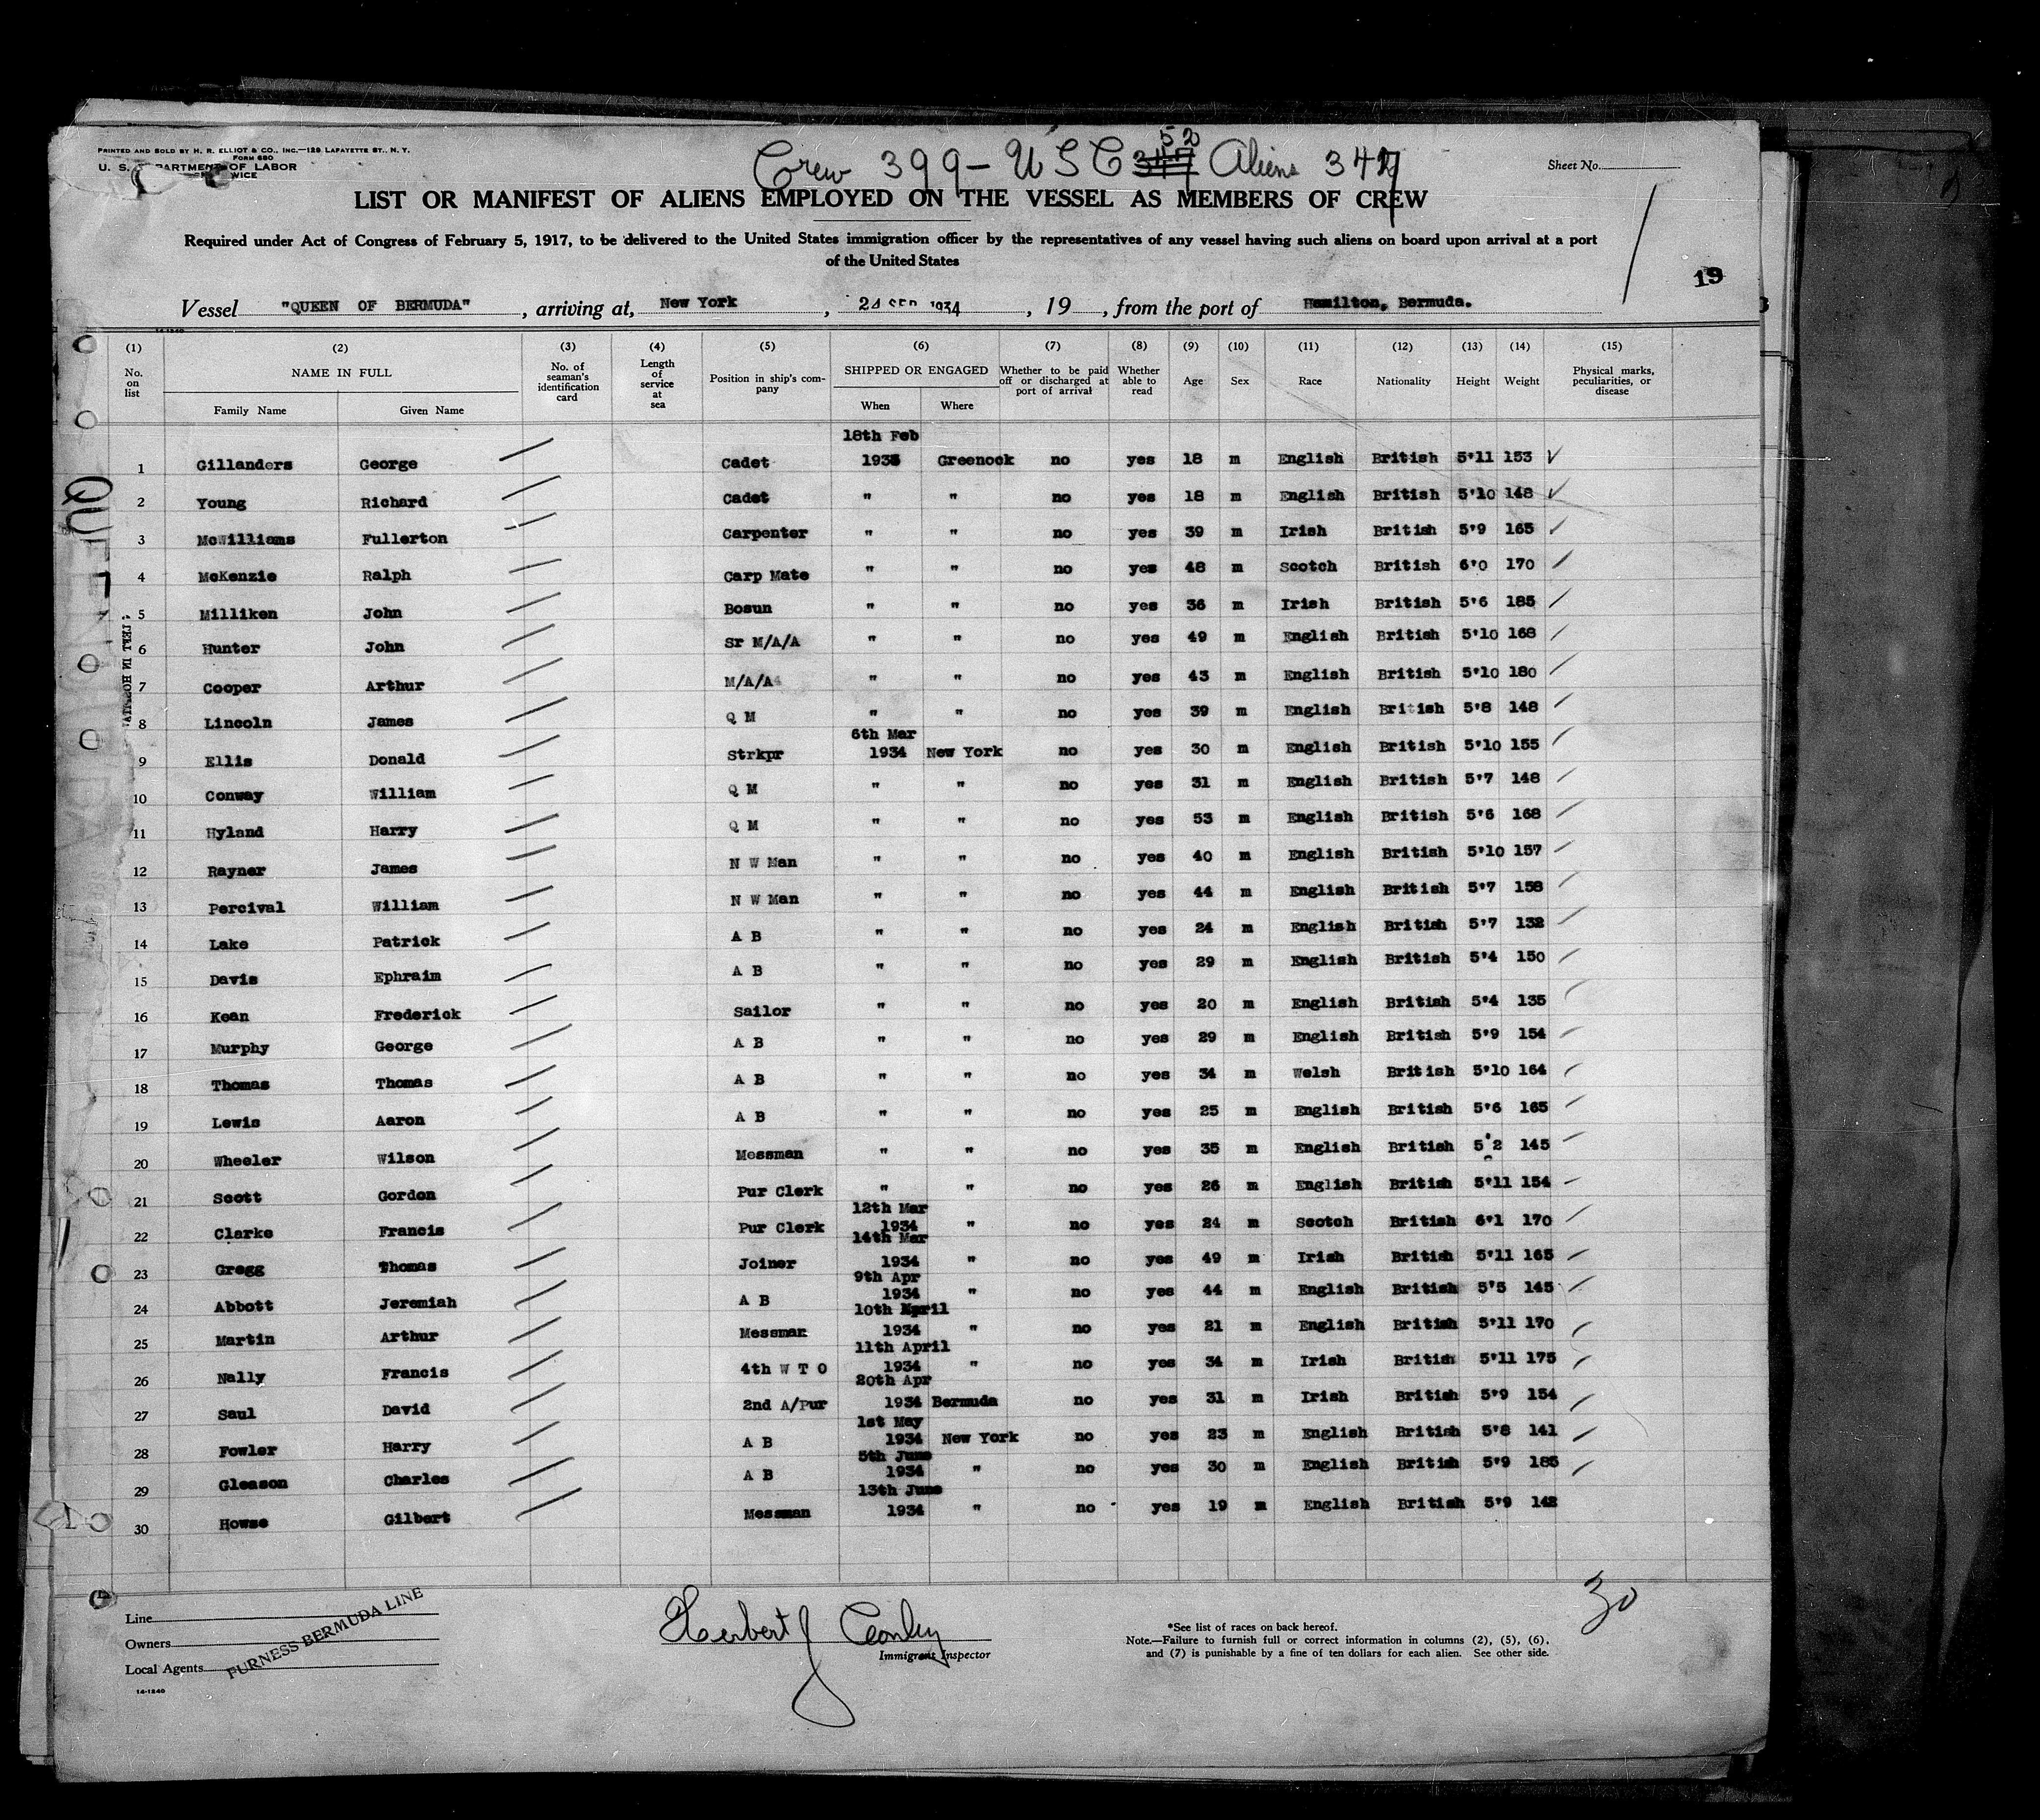 PRINTED AND SOLD BY H. R. ELLIOT & CO., INC.—129 LAFAYETTE ST., N. Y.
FORM 680
U. S. DEPARTMENT OF LABOR
Crew 399 - U S C 52 Aliens 347
Sheet No.
LIST OR MANIFEST OF ALIENS EMPLOYED ON THE VESSEL AS MEMBERS OF CREW
Required under Act of Congress of February 5, 1917, to be delivered to the United States immigration officer by the representatives of any vessel having such aliens on board upon arrival at a port
of the United States
19
Vessel "QUEEN OF BERMUDA", arriving at, New York, 24 SEP 1934, 19, from the port of Hamilton, Bermuda.
14-1240
(1) (2) (3) (4) (5) (6) (7) (8) (9) (10) (11) (12) (13) (14) (15)
No. on list NAME IN FULL Family Name Given Name No. of seaman's identification card Length of service at sea Position in ship's company SHIPPED OR ENGAGED When Where Whether to be paid off or discharged at port of arrival Whether able to read Age Sex Race Nationality Height Weight Physical marks, peculiarities, or disease
18th Feb
1 Gillanders George Cadet 1933 Greenock no yes 18 m English British 5'11 153
2 Young Richard Cadet " " no yes 18 m English British 5'10 148
3 McWilliams Fullerton Carpenter " " no yes 39 m Irish British 5'9 165
4 McKenzie Ralph Carp Mate " " no yes 48 m Scotch British 6'0 170
5 Milliken John Bosun " " no yes 36 m Irish British 5'6 185
6 Hunter John Sr M/A/A " " no yes 49 m English British 5'10 168
7 Cooper Arthur M/A/A " " no yes 43 m English British 5'10 180
8 Lincoln James Q M " " no yes 39 m English British 5'8 148
6th Mar
9 Ellis Donald Strkpr 1934 New York no yes 30 m English British 5'10 155
10 Conway William Q M " " no yes 31 m English British 5'7 148
11 Hyland Harry Q M " " no yes 53 m English British 5'6 168
12 Rayner James N W Man " " no yes 40 m English British 5'10 157
13 Percival William N W Man " " no yes 44 m English British 5'7 158
14 Lake Patrick A B " " no yes 24 m English British 5'7 132
15 Davis Ephraim A B " " no yes 29 m English British 5'4 150
16 Kean Frederick Sailor " " no yes 20 m English British 5'4 135
17 Murphy George A B " " no yes 29 m English British 5'9 154
18 Thomas Thomas A B " " no yes 34 m Welsh British 5'10 164
19 Lewis Aaron A B " " no yes 25 m English British 5'6 165
20 Wheeler Wilson Messman " " no yes 35 m English British 5'2 145
21 Scott Gordon Pur Clerk " " no yes 26 m English British 5'11 154
12th Mar
22 Clarke Francis Pur Clerk 1934 " no yes 24 m Scotch British 6'1 170
14th Mar
23 Gregg Thomas Joiner 1934 " no yes 49 m Irish British 5'11 165
9th Apr
24 Abbott Jeremiah A B 1934 " no yes 44 m English British 5'5 145
10th April
25 Martin Arthur Messman 1934 " no yes 21 m English British 5'11 170
11th April
26 Nally Francis 4th W T O 1934 " no yes 34 m Irish British 5'11 175
20th Apr
27 Saul David 2nd A/Pur 1934 Bermuda no yes 31 m Irish British 5'9 154
1st May
28 Fowler Harry A B 1934 New York no yes 23 m English British 5'8 141
5th June
29 Gleason Charles A B 1934 " no yes 30 m English British 5'9 185
13th June
30 Howse Gilbert Messman 1934 " no yes 19 m English British 5'9 142
30
Line
Owners
Local Agents
FURNESS BERMUDA LINE
14-1240
Herbert J Conley
Immigrant Inspector
*See list of races on back hereof.
Note.—Failure to furnish full or correct information in columns (2), (5), (6),
and (7) is punishable by a fine of ten dollars for each alien. See other side.